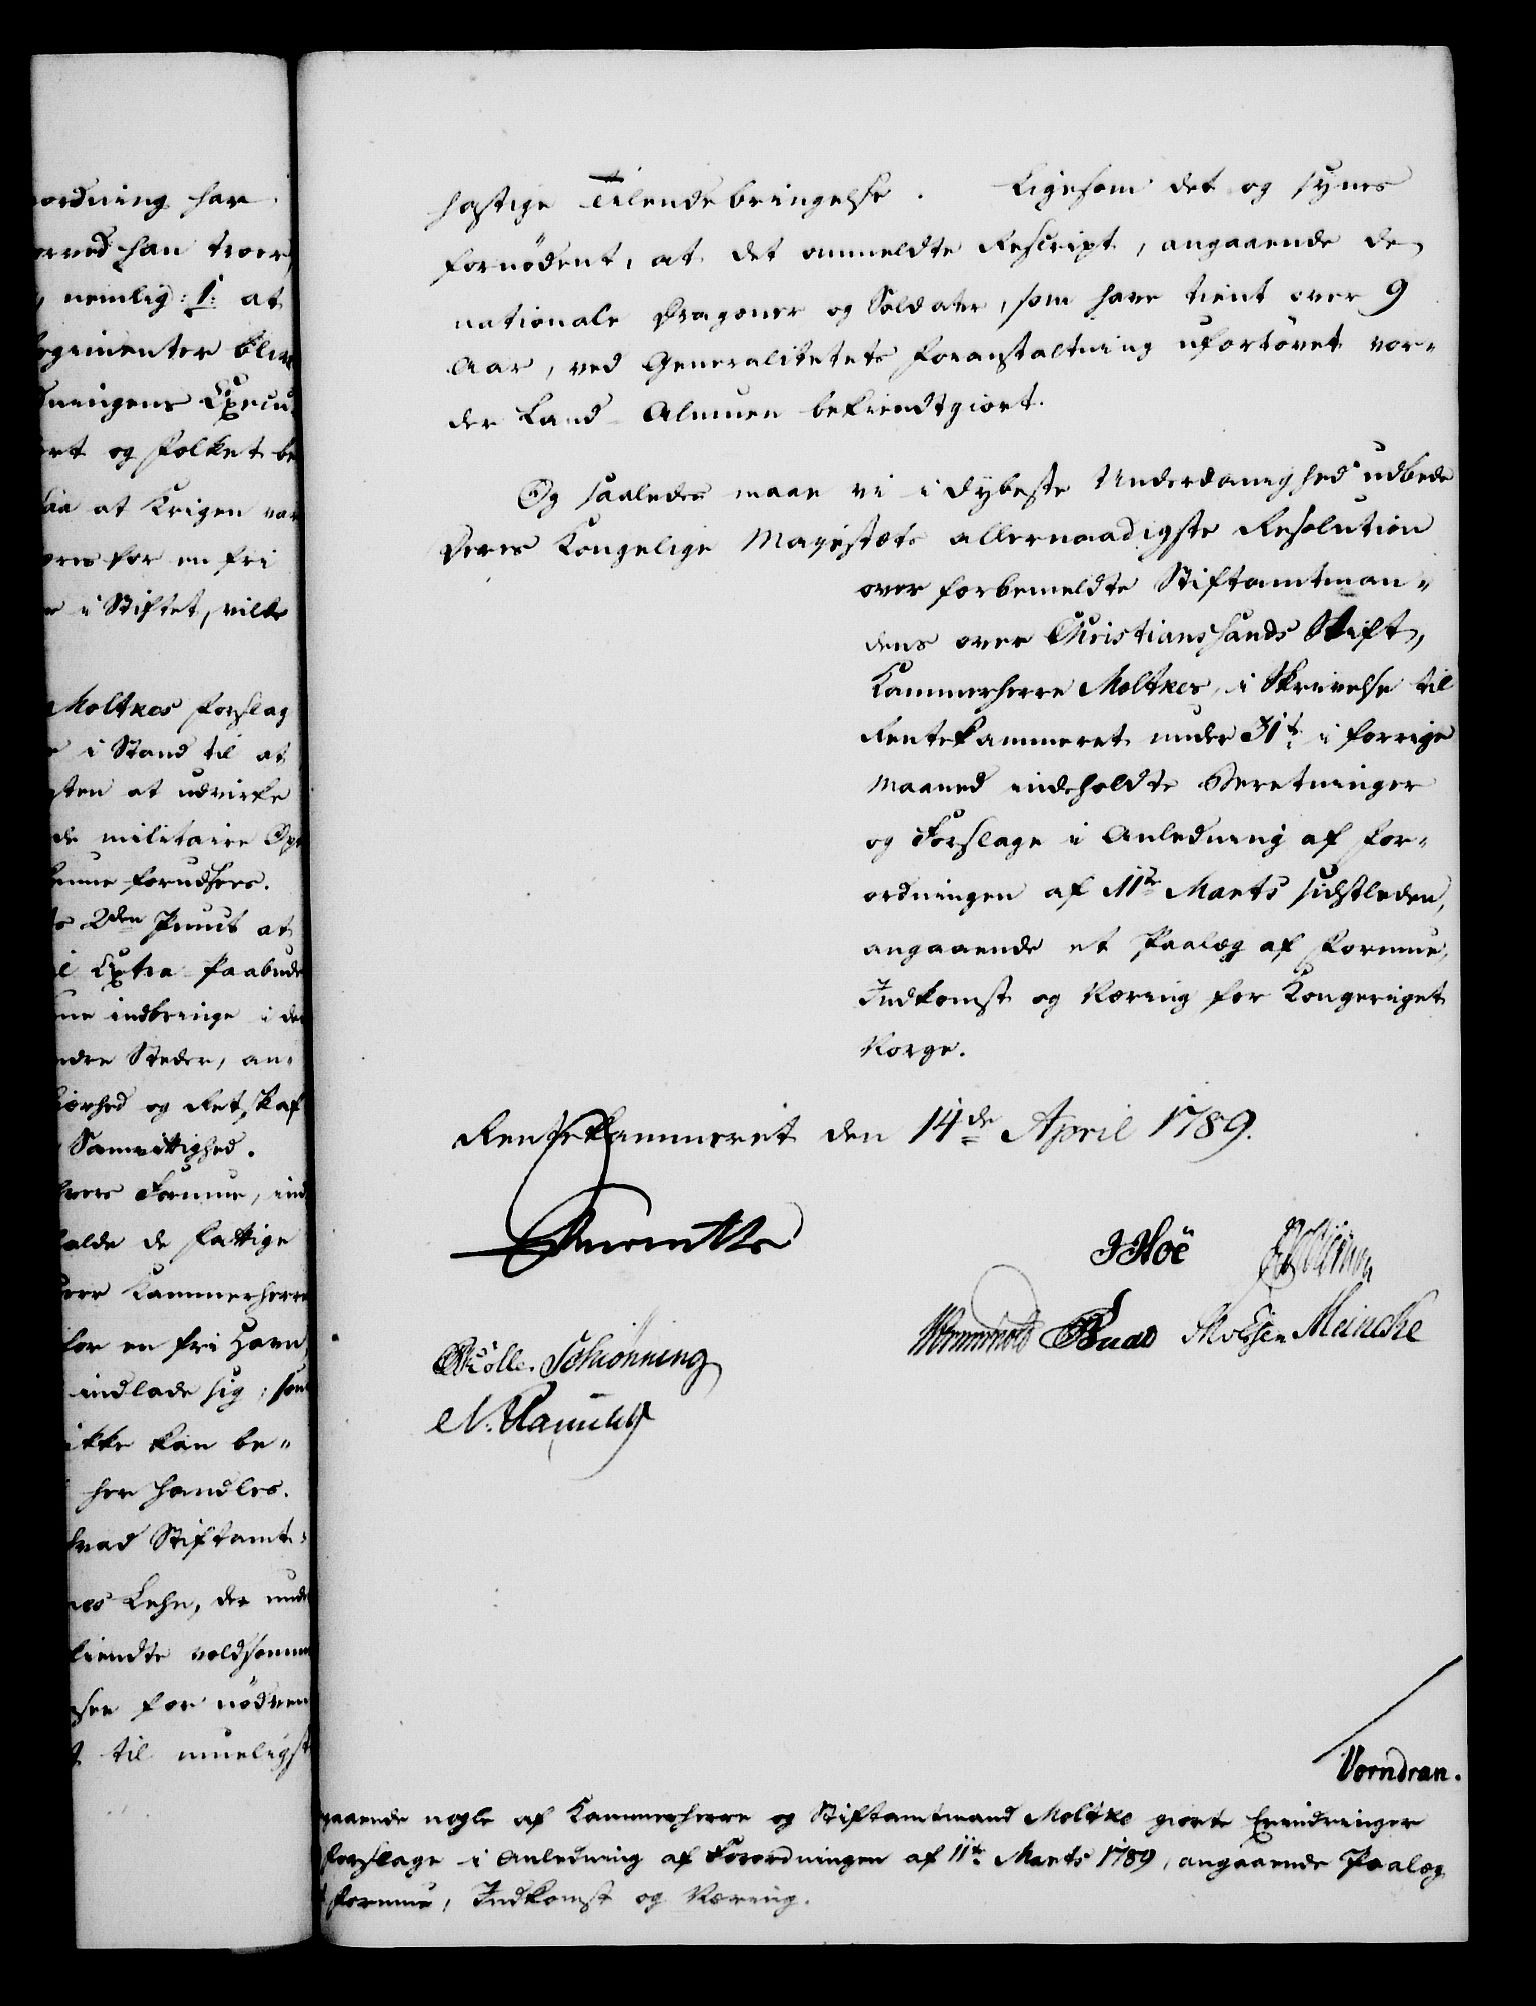 ordning har
ved han troer,
nemlig: 1: at
egimenter blive
ningens Execu-
rt og Folket be
at Krigen var
for en fri
i Stiftet, vilde
Moltkes Forslag
i Stand til at
at udvirke
de militaire Op
forudsees.
2den Punct at
Extra Paabude
indbringe i de
andre Steder, an-
hed og Retskaf
Samvittighed.
Formue, ind
de fattige
Kammerherre
for en fri Havn,
indlade sig; som
ikke kan be-
her handles.
hvad Stiftamt-
Lehn, der unde
kiendte voldsomme
for nødven
til mueligst
hastige Tilendebringelse. Ligesom det og synes
fornødent, at det anmeldte Rescript, angaaende de
nationale Dragoner og Soldater, som have tient over 9
Aar, ved Generalitetets Foranstaltning ufortøvet vor-
der Land-Almuen bekiendtgiort.
Og saaledes maae vi i dybeste Underdanighed udbede
Deres Kongelige Majestæts allernaadigste Resolution
over forbemeldte Stiftamtman-
dens over Christianssands Stift,
Kammerherre Moltkes, i Skrivelse til
Rentekammeret under 31te i forrige
Maaned indeholdte Beretninger
og Forslage i Anledning af For-
ordningen af 11te Marts sidstleden,
angaaende et Paalæg af Formue,
Indkomst og Næring for Kongeriget
Norge.
Rentekammeret den 14de April 1789.
JHoë
Wormskiold Buas Meincke
Møller. Schiønning
Vorndran.
gaaende nogle af Kammerherre og Stiftamtmand Moltke giorte Erindringer
Forslage i Anledning af Forordningen af 11te Marts 1789, angaaende Paalæg
Formue, Indkomst og Næring.